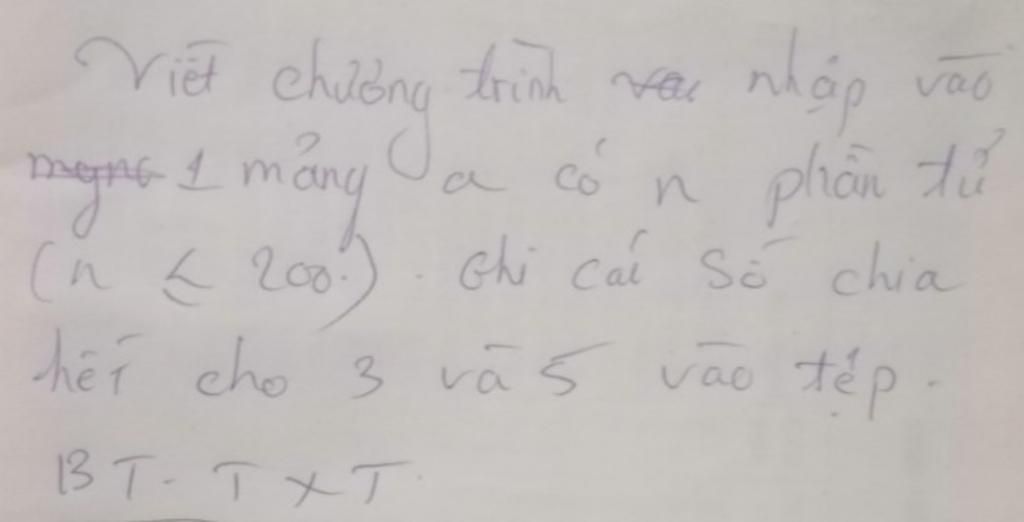 Viết chương trình nhập vào
1 mảng a có n phần tử
(n ≤ 200). Ghi cái số chia
hết cho 3 và 5 vào tệp.
BT.TXT